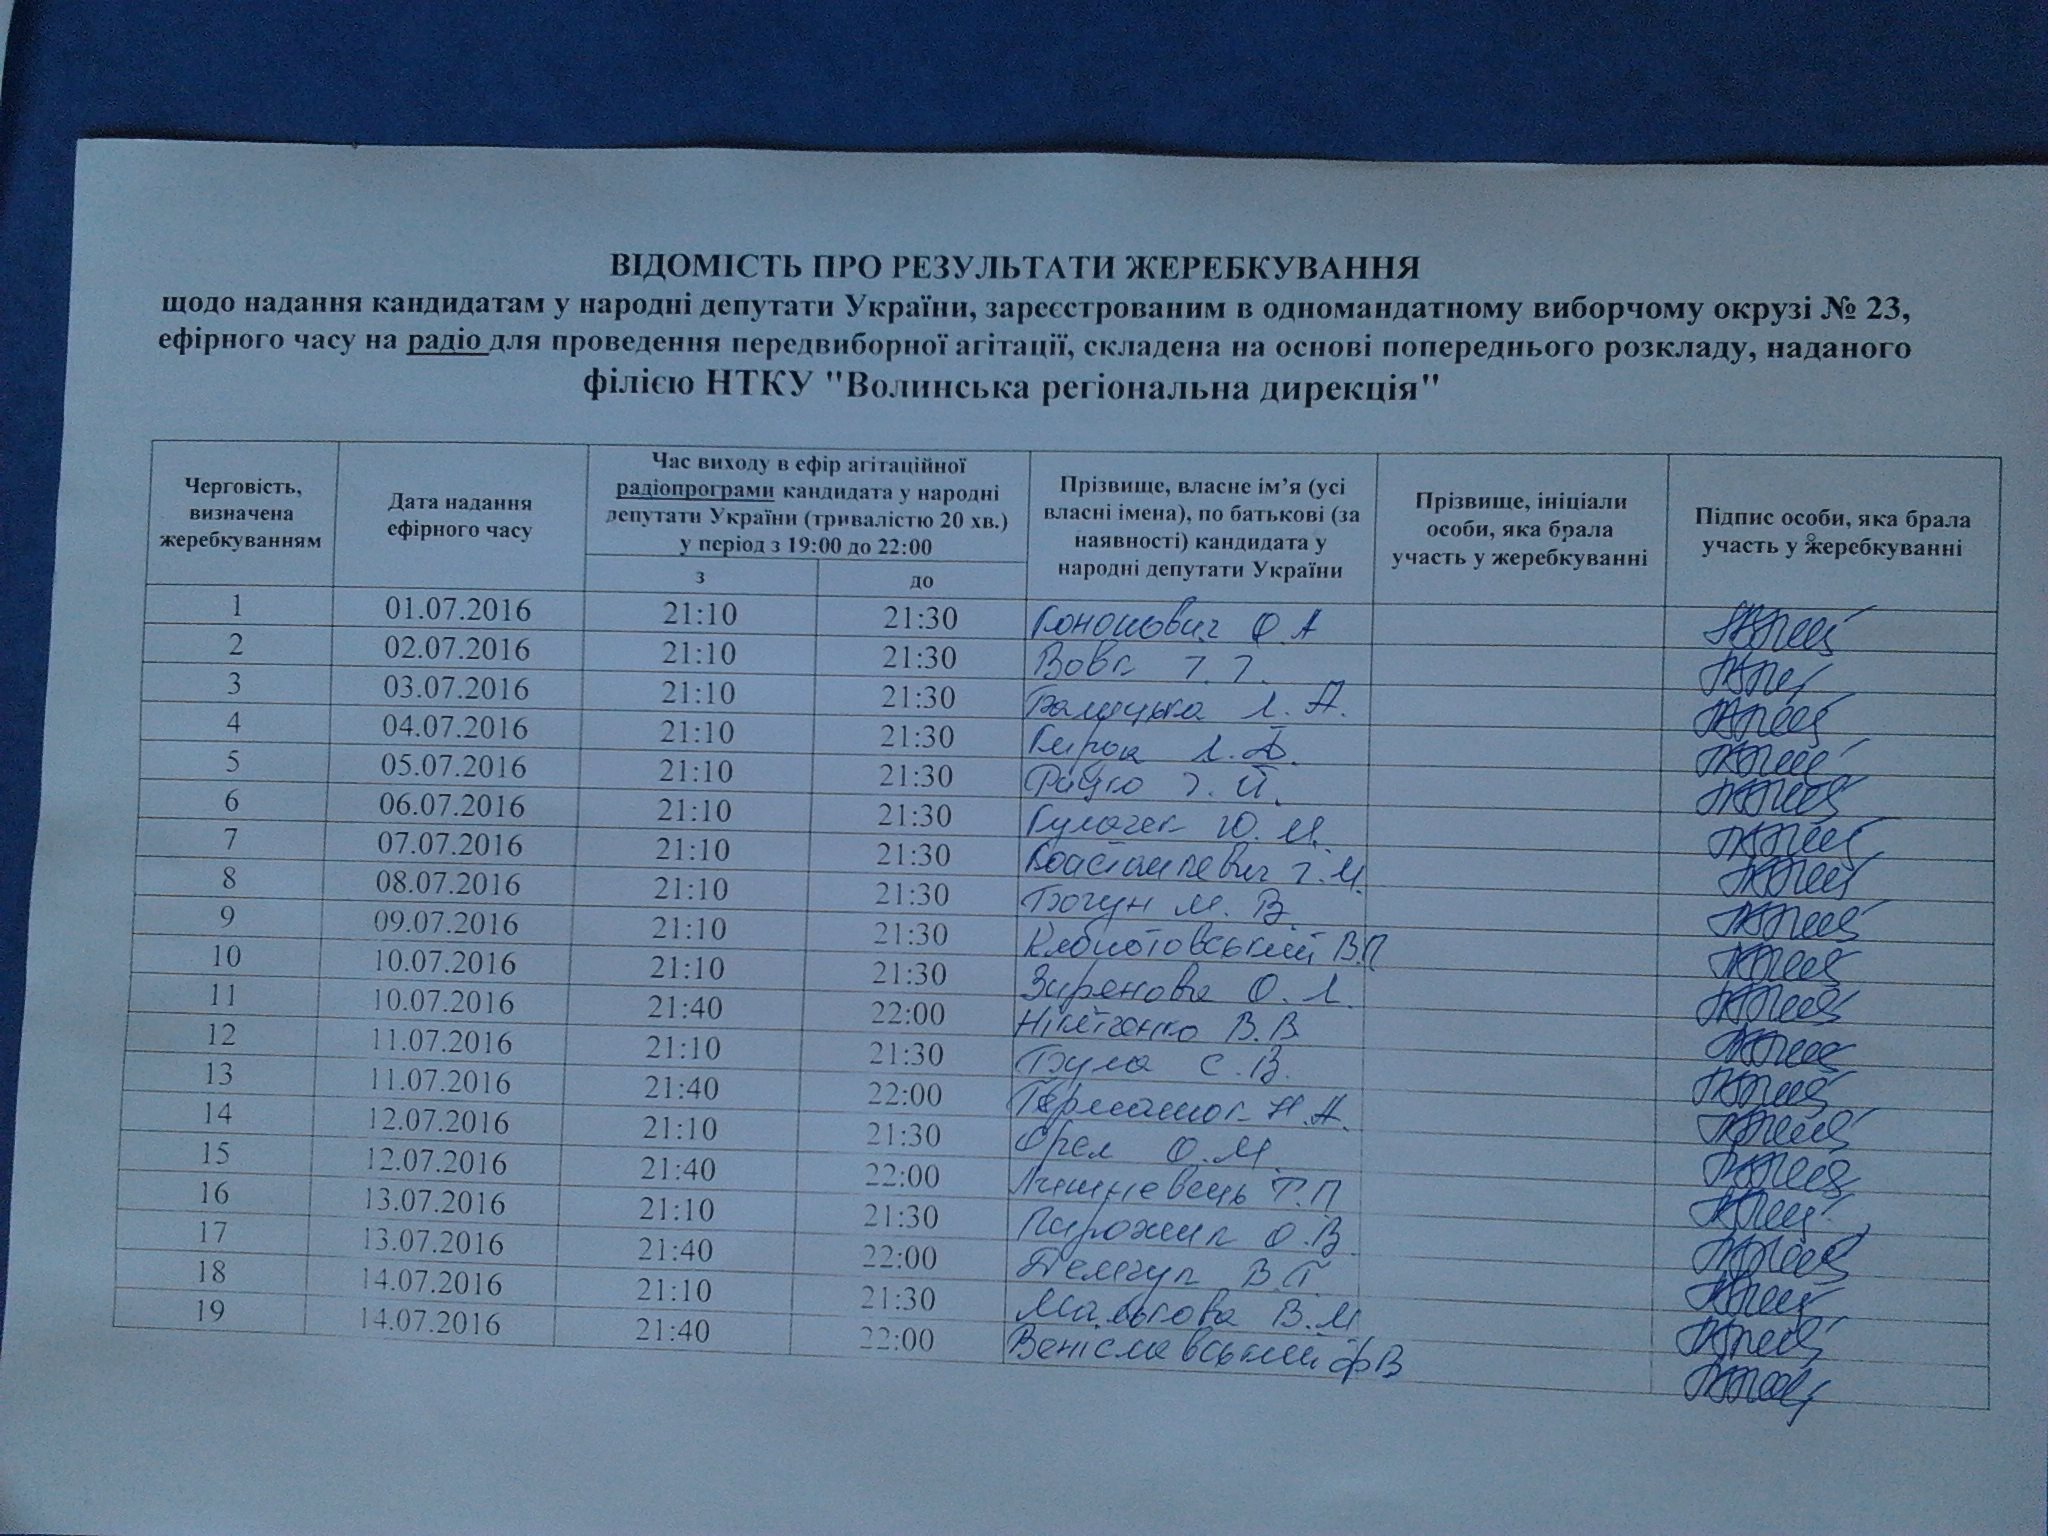 ВІДОМІСТЬ ПРО РЕЗУЛЬТАТИ ЖЕРЕБКУВАННЯ
щодо надання кандидатам у народні депутати України, зареєстрованим в одномандатному виборчому окрузі № 23,
ефірного часу на радіо для проведення передвиборної агітації, складена на основі попереднього розкладу, наданого
філією НТКУ "Волинська регіональна дирекція"
Черговість, визначена жеребкуванням
Дата надання ефірного часу
Час виходу в ефір агітаційної радіопрограми кандидата у народні депутати України (тривалістю 20 хв.) у період з 19:00 до 22:00
з до
Прізвище, власне ім’я (усі власні імена), по батькові (за наявності) кандидата у народні депутати України
Прізвище, ініціали особи, яка брала участь у жеребкуванні
Підпис особи, яка брала участь у жеребкуванні
1 01.07.2016 21:10 21:30 О А
2 02.07.2016 21:10 21:30 Вовк
3 03.07.2016 21:10 21:30
4 04.07.2016 21:10 21:30
5 05.07.2016 21:10 21:30
6 06.07.2016 21:10 21:30 Ю. М.
7 07.07.2016 21:10 21:30
8 08.07.2016 21:10 21:30 Богун М. В.
9 09.07.2016 21:10 21:30 В.П
10 10.07.2016 21:10 21:30 Зирянова О. Л.
11 10.07.2016 21:40 22:00 В.В
12 11.07.2016 21:10 21:30 Була С.В.
13 11.07.2016 21:40 22:00
14 12.07.2016 21:10 21:30 Орел О.М
15 12.07.2016 21:40 22:00 Лишневець Т.П
16 13.07.2016 21:10 21:30 Пирожик О.В
17 13.07.2016 21:40 22:00 Демчук В.Г
18 14.07.2016 21:10 21:30 Малькова В.М
19 14.07.2016 21:40 22:00 Веніславський ф В